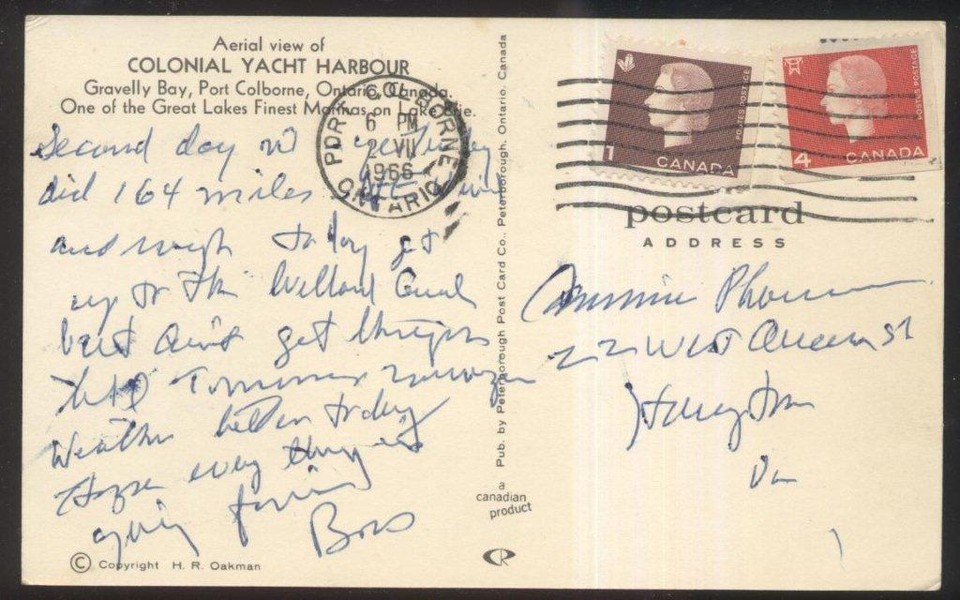 Aerial view of
COLONIAL YACHT HARBOUR
Gravelly Bay, Port Colborne, Ontario, Canada.
One of the Great Lakes Finest Marinas on Lake Erie.
Second day
did 164 miles
and rough today get
up to the Welland Canal
but get through
Tomorrow
Weather better today
Hope every thing is
going fine
Bob
© Copyright H. R. Oakman
PORT COLBORNE
6 PM
2 VII
1966
ONTARIO
Pub. by Peterborough Post Card Co., Peterborough, Ontario, Canada
a
canadian
product
CR
POSTES POSTAGE
1 CANADA
POSTES POSTAGE
4 CANADA
postcard
ADDRESS
22 West Queen St
Va